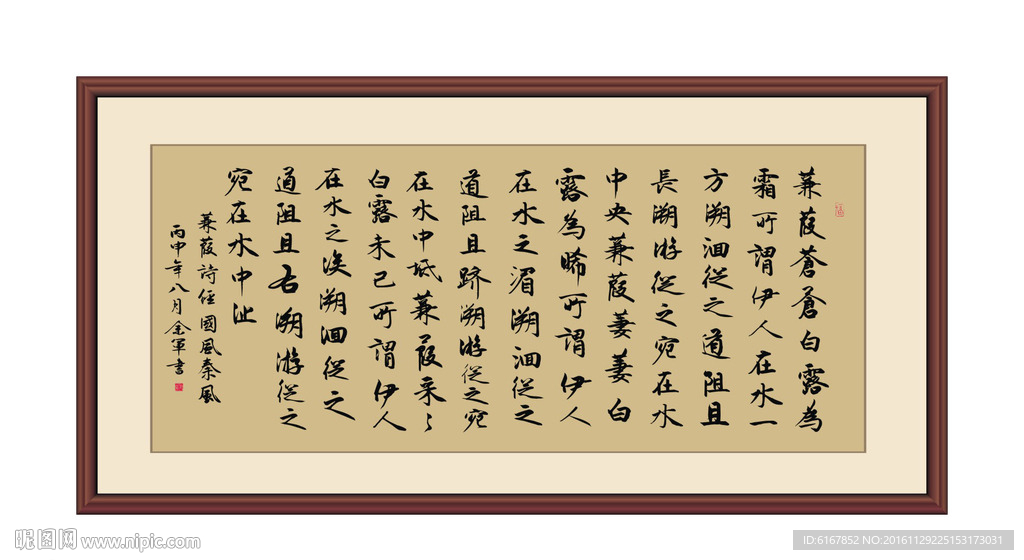 蒹葭蒼蒼白露為
霜所謂伊人在水一
方溯洄從之道阻且
長溯游從之宛在水
中央蒹葭萋萋白
露為晞所謂伊人
在水之湄溯洄從之
道阻且躋溯游從之宛
在水中坻蒹葭采〻
白露未已所謂伊人
在水之涘溯洄從之
道阻且右溯游從之
宛在水中沚
蒹葭詩經國風秦風
丙申年八月金軍書
昵图网 www.nipic.com
ID:6167852 NO:20161129225153173031